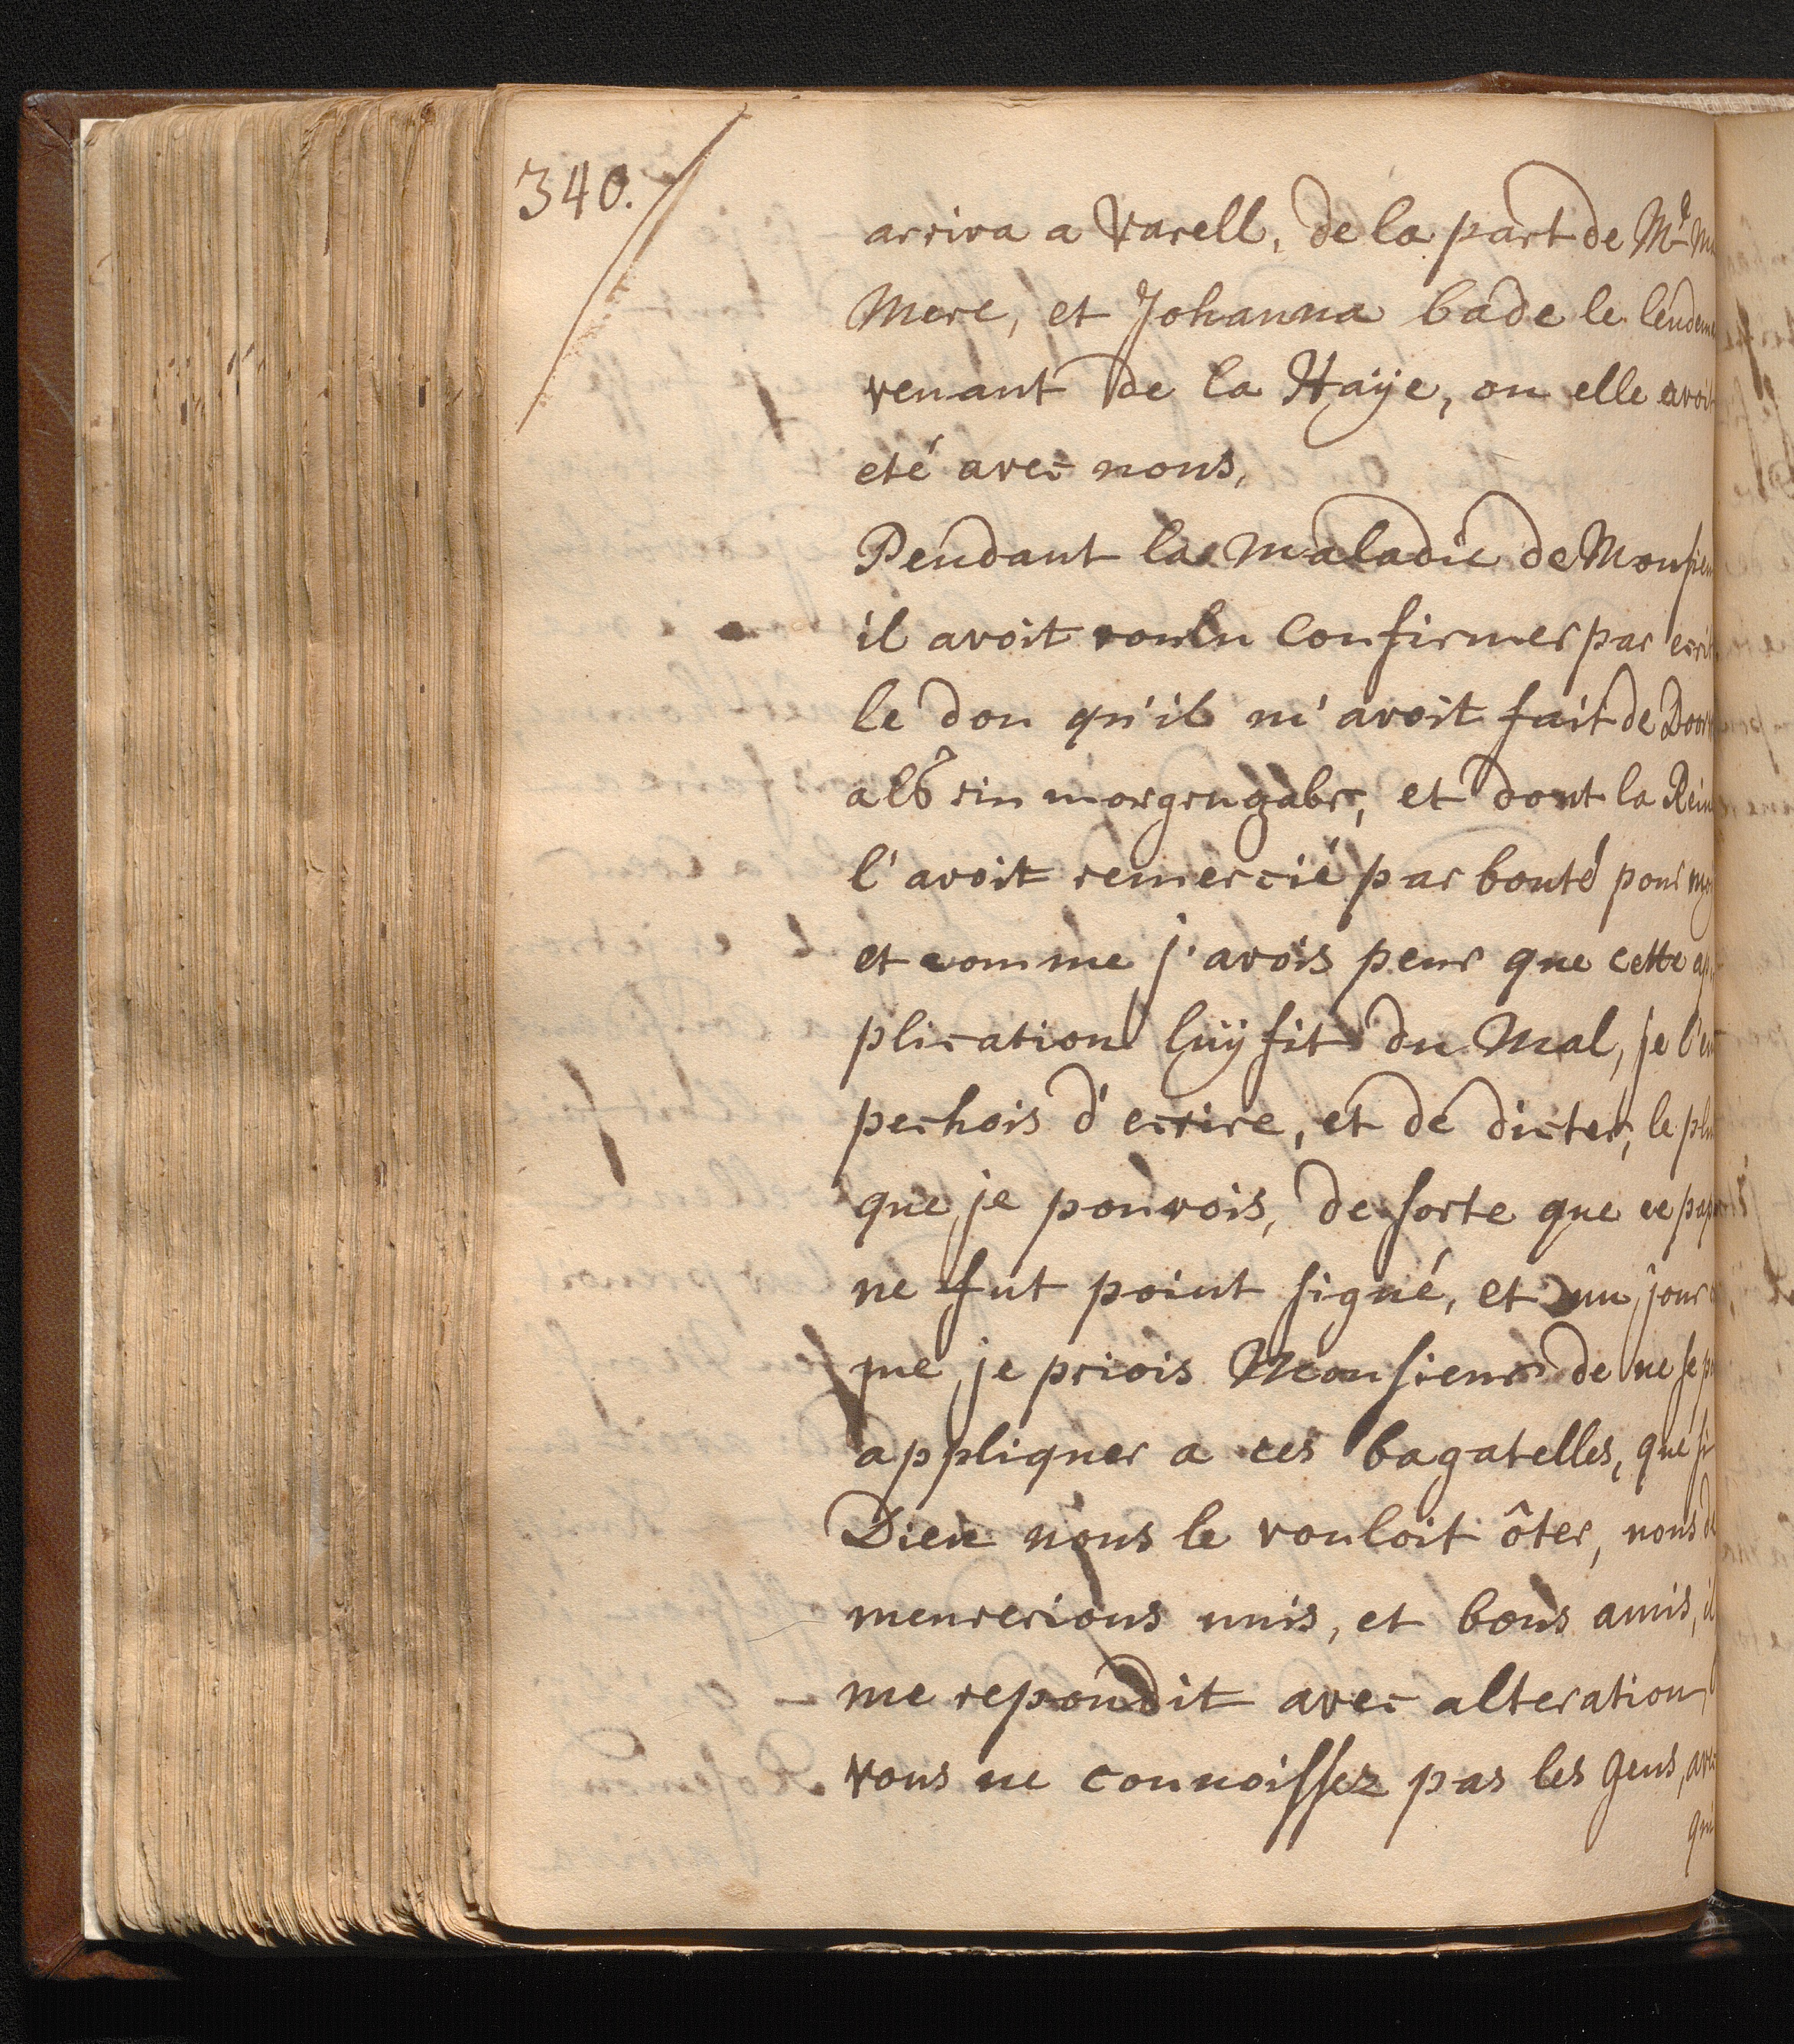 340.
arriva a Varell, de la part de Md
Mere, et Johanna bade le lendem
venant de la Haÿe, ou elle avoit
eté avec nous,
Pendant la maladie de Monsieu
il avoit voulu confirmer par ecrit
le don qu'il m'avoit fait de Door
alß ein morgengabe, et dont la Rein
l'avoit remercié par bonté pour moy
et comme j'avois peur que cette ap
plication luÿ fit du Mal, je l'em
pechois d'ecrire, et de dicter, le plu
que je pouvois, de sorte que ce pap
ne fut point signé, et un jour
me je priois Monsieur de ne se p
appliquer a ces bagatelles, que si
Dieu nous le vouloit ôter, nous de
meurerions unis, et bons amis, il
me repondit avec alteration,
vous ne connoissez pas les gens, avec
qui